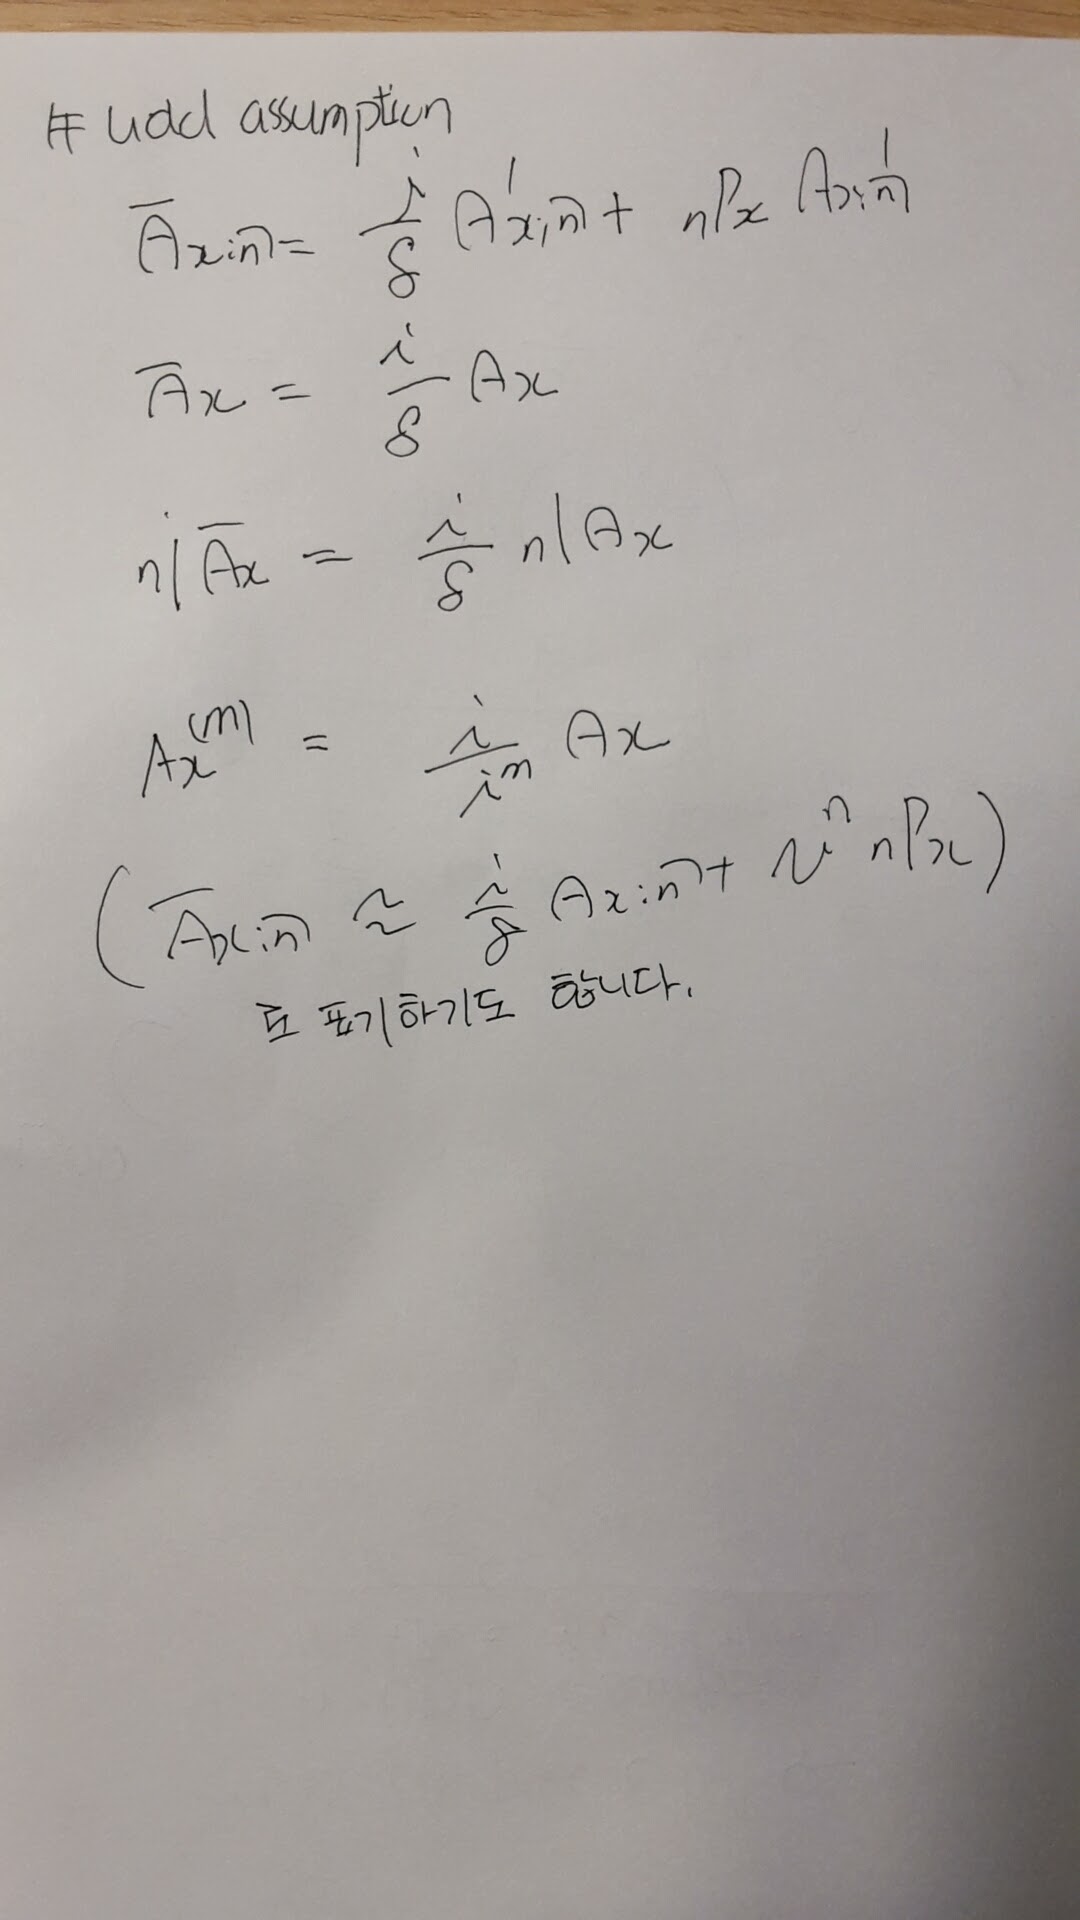 # udd assumption
Ā x:n̅| = i/δ A¹x:n̅| + nPx A x:n̅|¹
Āx = i/δ Ax
n|Āx = i/δ n|Ax
Ax⁽ᵐ⁾ = i/iᵐ Ax
(Ā x:n̅| ≈ i/δ A x:n̅| + vⁿ nPx)
로 표기하기도 합니다.